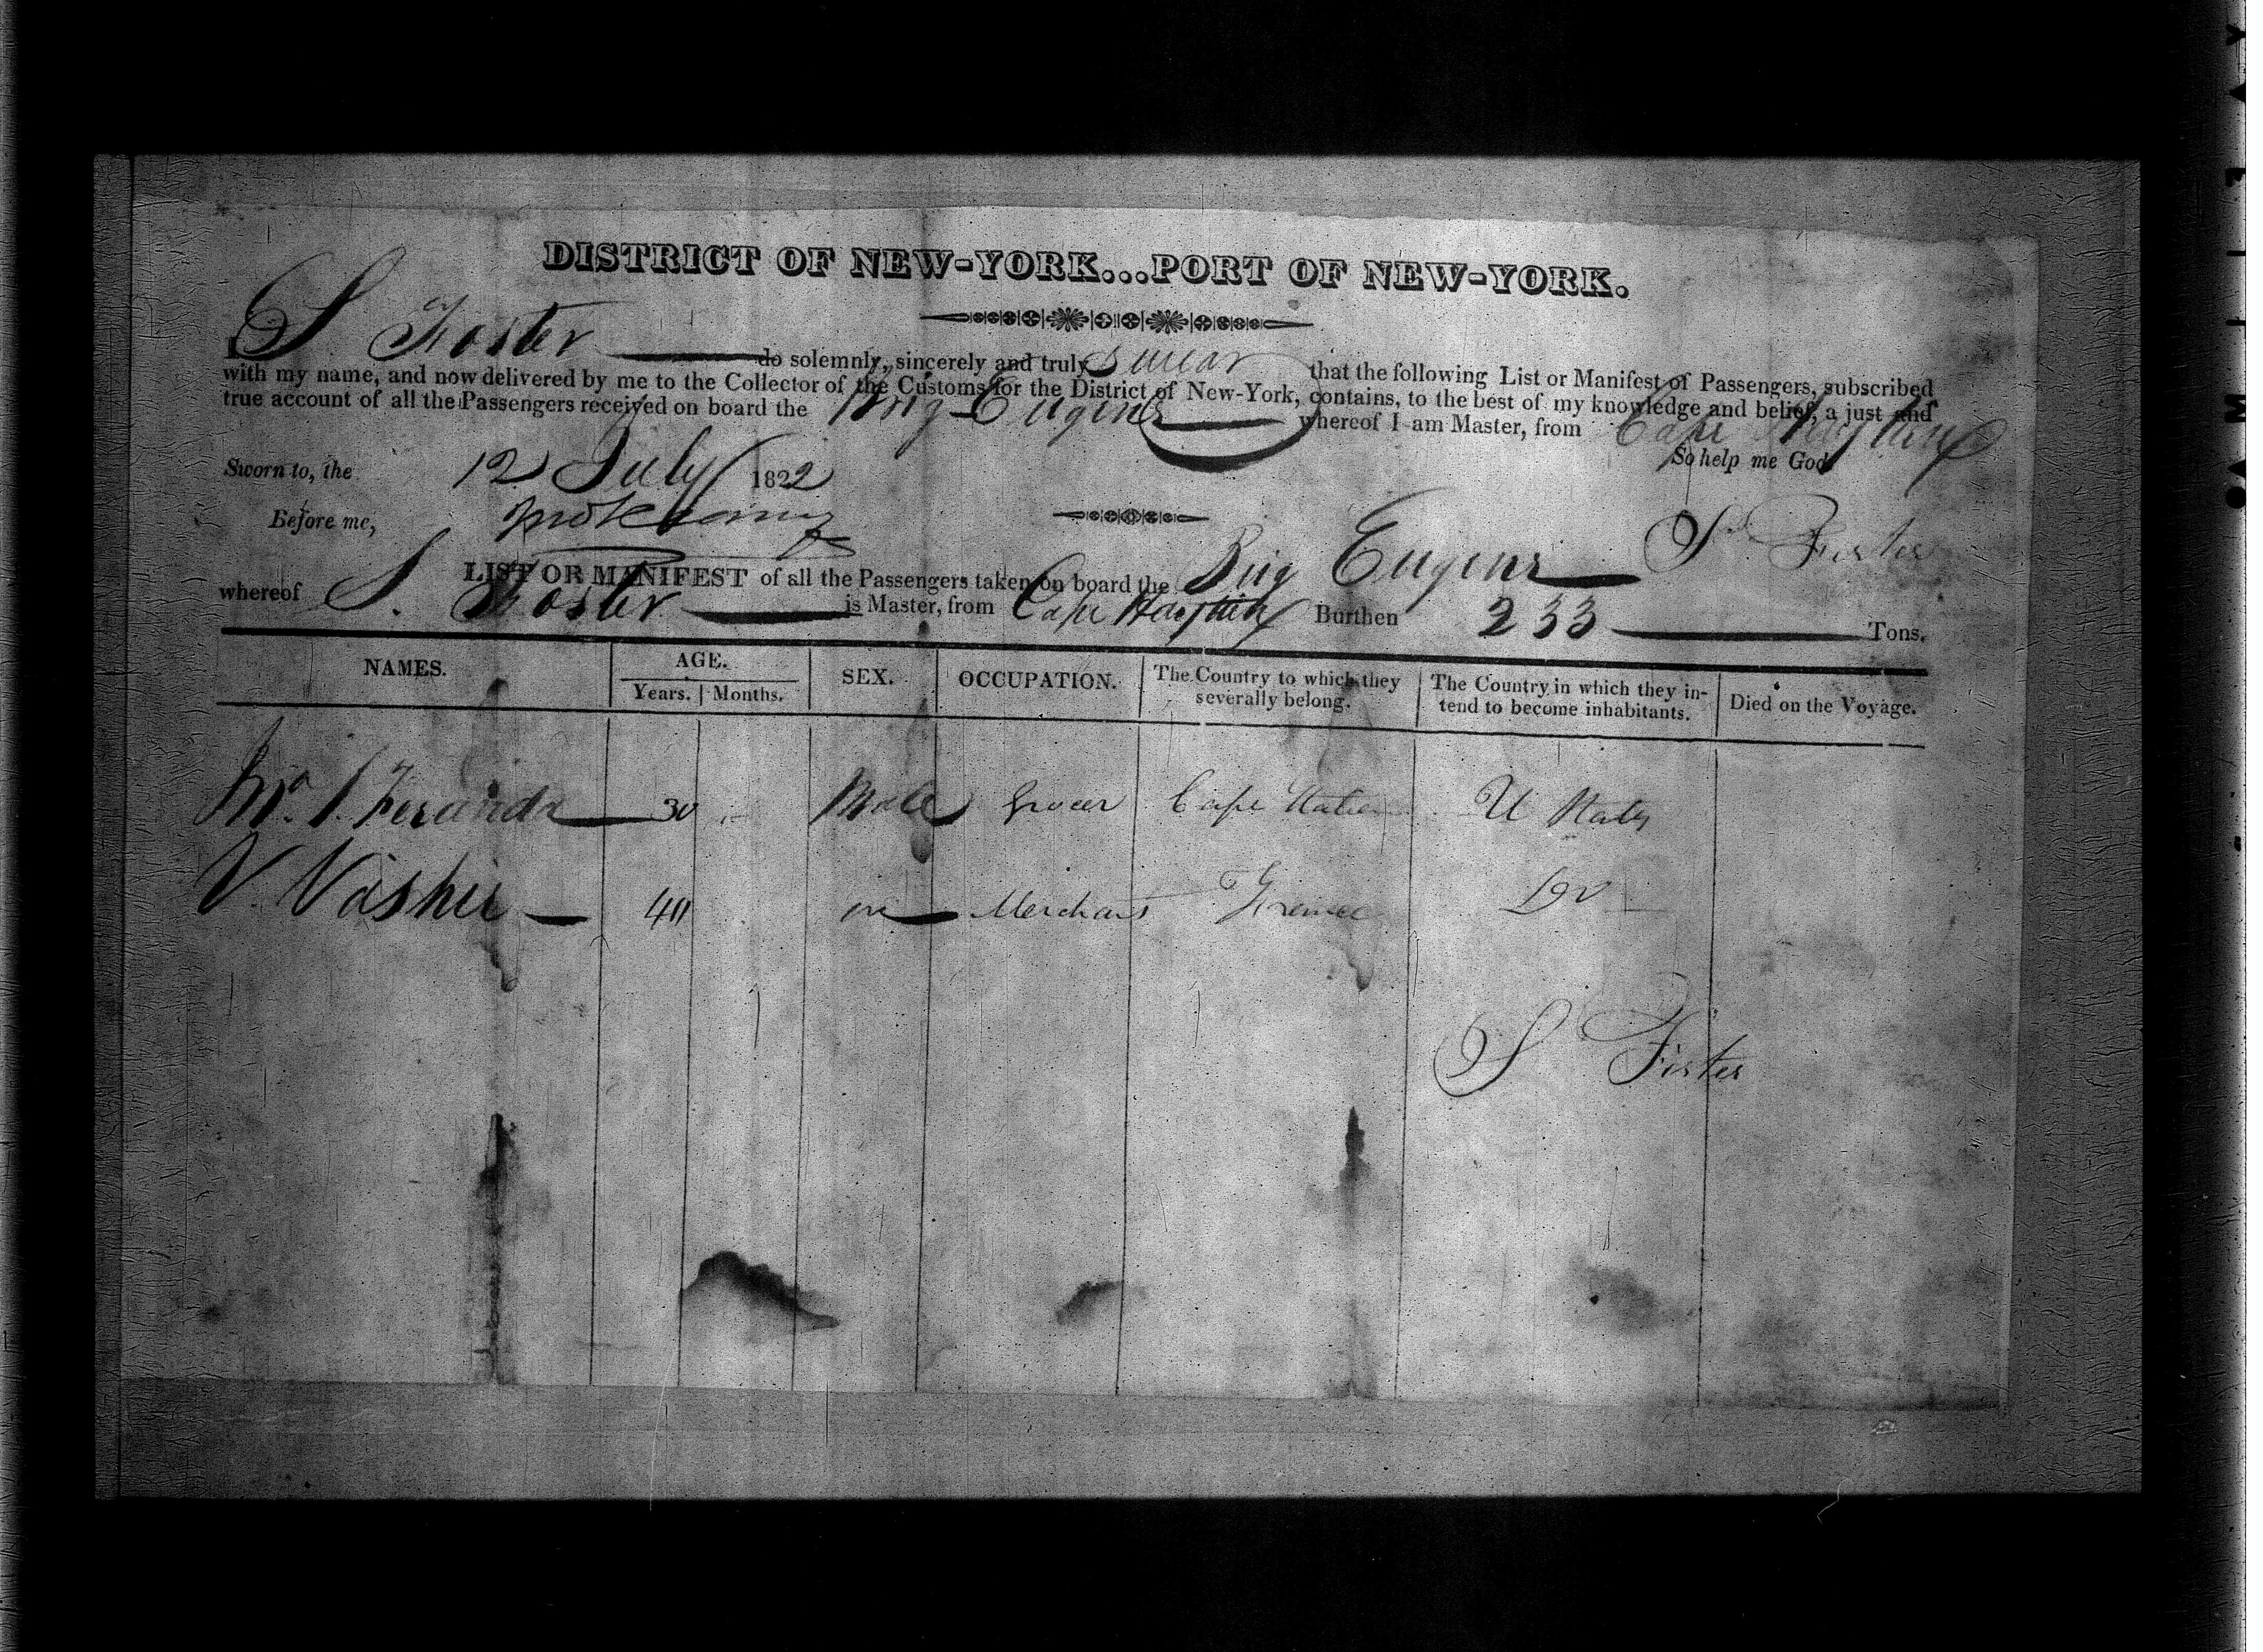 DISTRICT OF NEW-YORK...PORT OF NEW-YORK.
I S Foster do solemnly, sincerely and truly swear that the following List or Manifest of Passengers, subscribed
with my name, and now delivered by me to the Collector of the Customs for the District of New-York, contains, to the best of my knowledge and belief, a just and
true account of all the Passengers received on board the Brig Eugene whereof I am Master, from Cape
So help me God.
Sworn to, the 12 July 1822
Before me,
S Foster
LIST OR MANIFEST of all the Passengers taken on board the Brig Eugene
whereof S. Foster is Master, from Cape Haytien Burthen 233 Tons.
NAMES. AGE. SEX. OCCUPATION. The Country to which they severally belong. The Country in which they intend to become inhabitants. Died on the Voyage.
Years. Months.
30 Male Grocer Cape U States
V. Vashie 40 Merchant France
S Foster